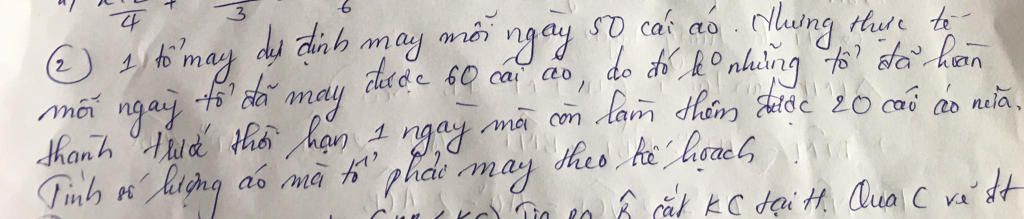 4 + 3 6
② 1 tổ may dự định may mỗi ngày 50 cái áo. Nhưng thực tế
mỗi ngày tổ đã may được 60 cái áo, do đó ko những tổ đã hoàn
thành trước thời hạn 1 ngày mà còn làm thêm được 20 cái áo nữa.
Tính số lượng áo mà tổ phải may theo kế hoạch
cắt KC tại H. Qua C vẽ đt